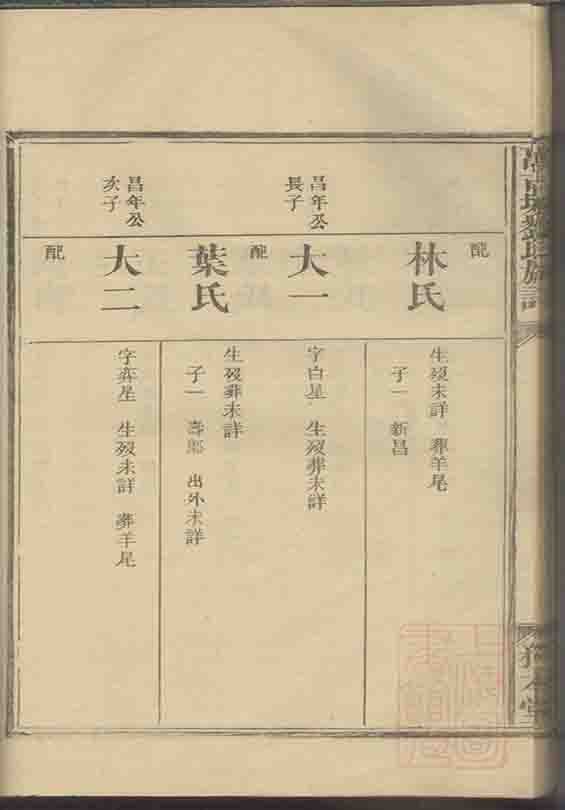 配
林氏
生歿未詳 葬羊尾
子一 新昌
昌年公
長子
大一
字白星 生歿葬未詳
配
葉氏
生歿葬未詳
子一 壽 出外未詳
昌年公
次子
大二
字弈星 生歿未詳 葬羊尾
配